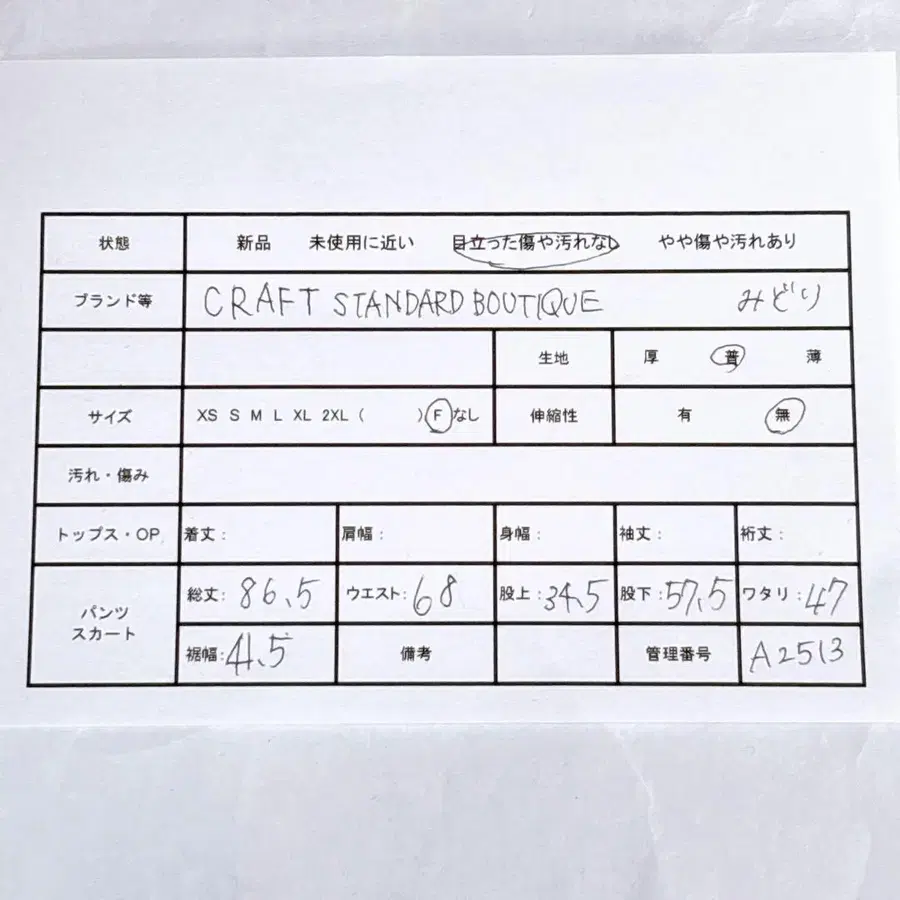 状態 新品 未使用に近い 目立った傷や汚れなし やや傷や汚れあり
ブランド等 CRAFT STANDARD BOUTIQUE みどり
生地 厚 普 薄
サイズ XS S M L XL 2XL ( ) F なし 伸縮性 有 無
汚れ・傷み
トップス・OP 着丈: 肩幅: 身幅: 袖丈: 裄丈:
パンツ スカート 総丈: 86.5 ウエスト: 68 股上: 34.5 股下: 57.5 ワタリ: 47
裾幅: 41.5 備考 管理番号 A2513